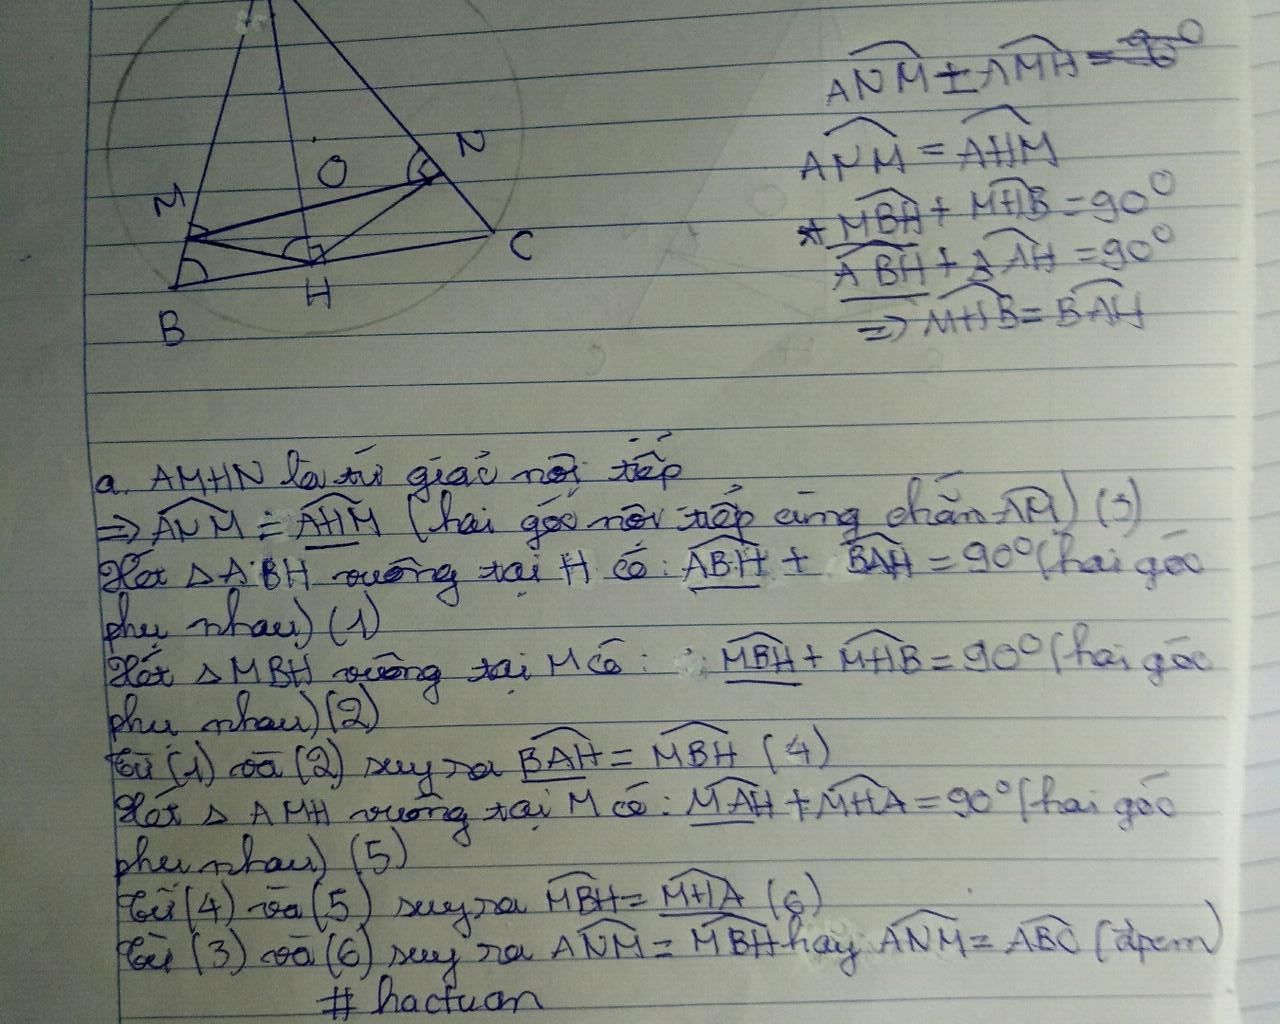 M
O
N
C
H
B
ANM + AMH = 90°
ANM = AHM
* MBH + MHB = 90°
ABH + AAH = 90°
=> MHB = BAH
a. AMHN là tứ giác nội tiếp
=> ANM = AHM (hai góc nội tiếp cùng chắn AM) (3)
Xét △ ABH vuông tại H có: ABH + BAH = 90° (hai góc
phụ nhau) (1)
Xét △ MBH vuông tại M có: MBH + MHB = 90° (hai góc
phụ nhau) (2)
Từ (1) và (2) suy ra BAH = MBH (4)
Xét △ AMH vuông tại M có: MAH + MHA = 90° (hai góc
phụ nhau) (5)
Từ (4) và (5) suy ra MBH = MHA (6)
Từ (3) và (6) suy ra ANM = MBH hay ANM = ABC (đpcm)
# hactuan